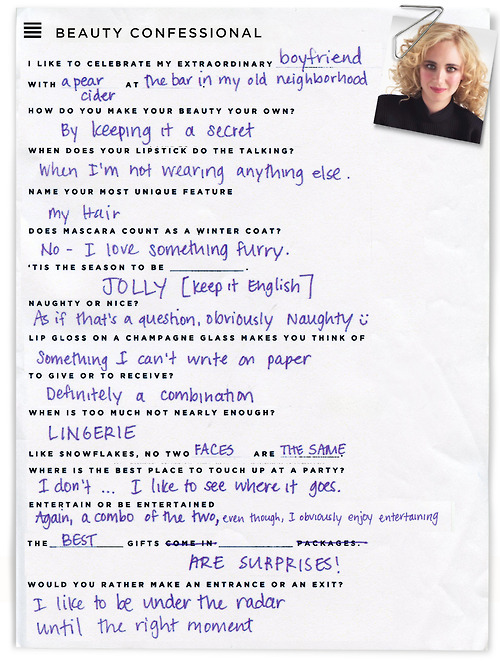 BEAUTY CONFESSIONAL
I LIKE TO CELEBRATE MY EXTRAORDINARY boyfriend
WITH a pear cider AT the bar in my old neighborhood
HOW DO YOU MAKE YOUR BEAUTY YOUR OWN?
By keeping it a secret
WHEN DOES YOUR LIPSTICK DO THE TALKING?
When I'm not wearing anything else.
NAME YOUR MOST UNIQUE FEATURE
my Hair
DOES MASCARA COUNT AS A WINTER COAT?
No - I love something furry.
'TIS THE SEASON TO BE __________.
JOLLY [keep it English]
NAUGHTY OR NICE?
As if that's a question, obviously Naughty
LIP GLOSS ON A CHAMPAGNE GLASS MAKES YOU THINK OF
Something I can't write on paper
TO GIVE OR TO RECEIVE?
Definitely a combination
WHEN IS TOO MUCH NOT NEARLY ENOUGH?
LINGERIE
LIKE SNOWFLAKES, NO TWO FACES ARE THE SAME
WHERE IS THE BEST PLACE TO TOUCH UP AT A PARTY?
I don't ... I like to see where it goes.
ENTERTAIN OR BE ENTERTAINED
Again, a combo of the two, even though, I obviously enjoy entertaining
THE BEST GIFTS COME IN __________ PACKAGES.
ARE SURPRISES!
WOULD YOU RATHER MAKE AN ENTRANCE OR AN EXIT?
I like to be under the radar
until the right moment